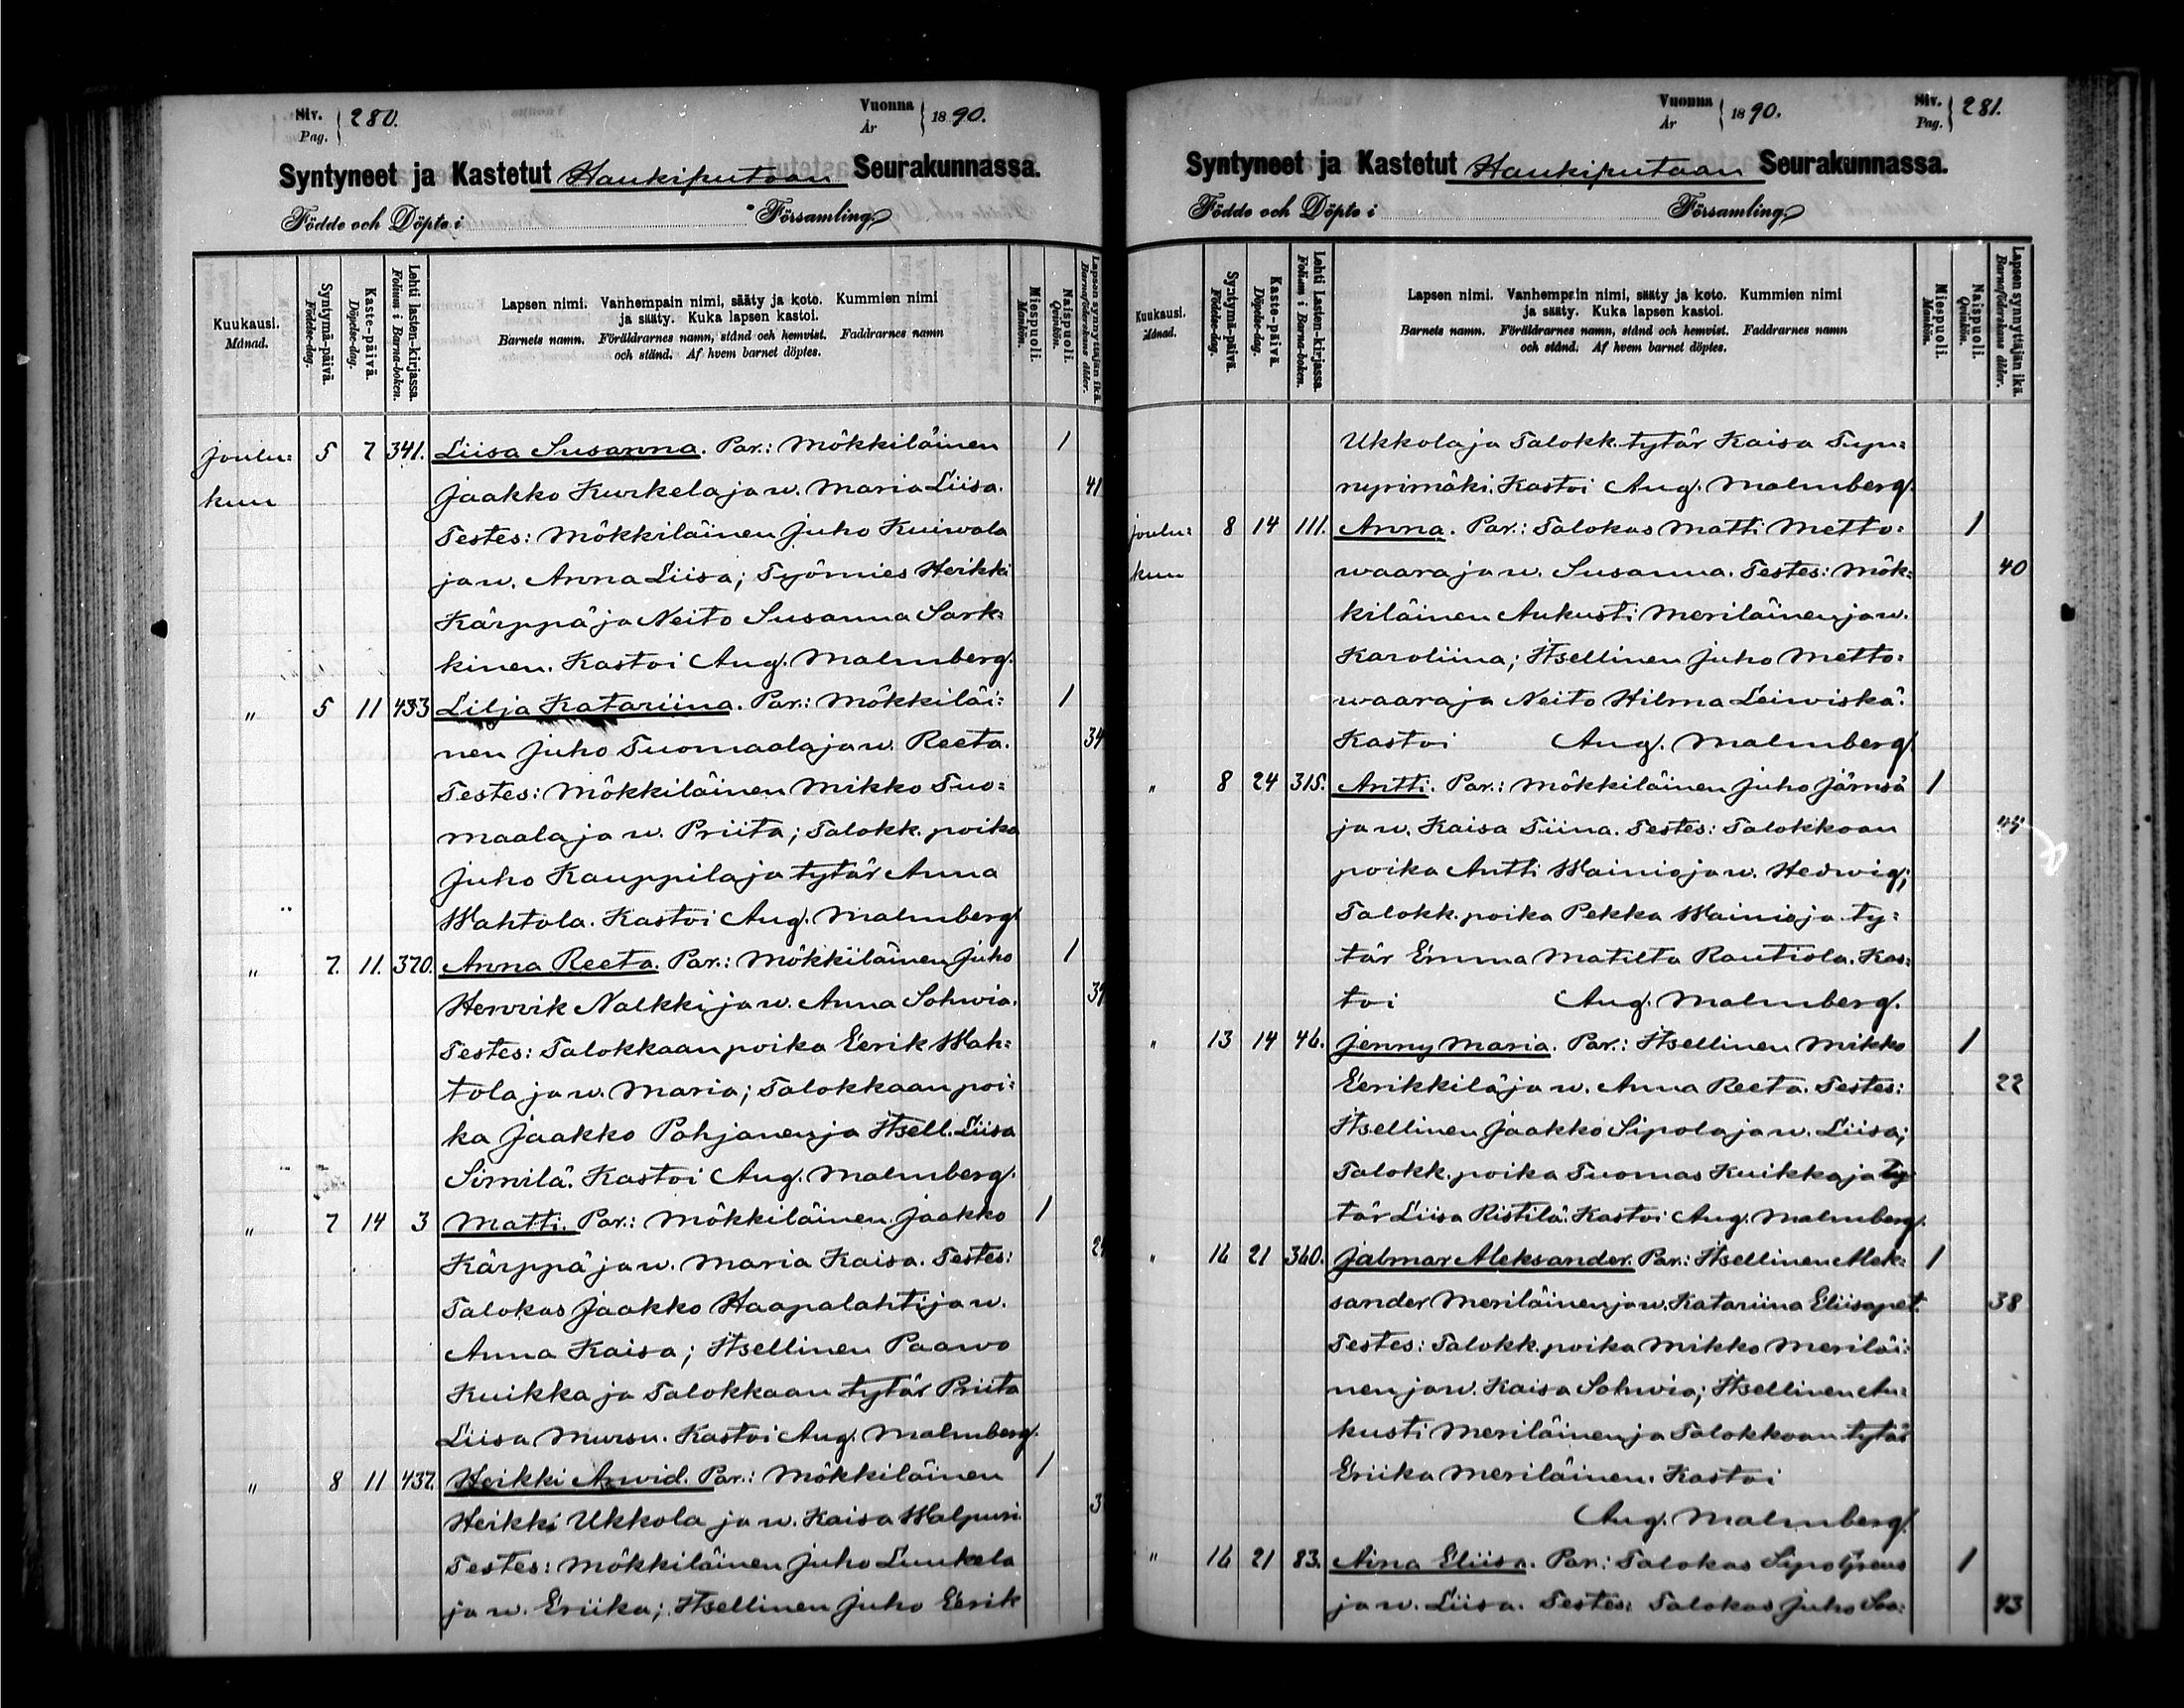 Siv. Pag. 280.
Vuonna År 1890.
Syntyneet ja Kastetut Haukiputaan Seurakunnassa.
Födde och Döpte i Församling.
Kuukausi. Månad.
Syntymä-päivä. Födelse-dag.
Kaste-päivä. Döpelse-dag.
Lehti lasten-kirjassa. Folium i Barna-boken.
Lapsen nimi. Vanhempain nimi, sääty ja koto. Kummien nimi
ja sääty. Kuka lapsen kastoi.
Barnets namn. Föräldrarnes namn, stånd och hemvist. Faddrarnes namn
och stånd. Af hvem barnet döptes.
Miespuoli. Mankön.
Naispuoli. Qvinkön.
Lapsen synnyttäjän ikä. Barnaföderskans ålder.
Joulu= 5 7 341. Liisa Susanna. Par.: Mökkiläinen 1
kuu Jaakko Kurkela ja w. Maria Liisa. 41
Testes: Mökkiläinen Juho Kuiwala
ja w. Anna Liisa; Työmies Heikki
Kärppä ja Neito Susanna Sark=
kinen. Kastoi Aug. Malmberg.
" 5 11 433 Lilja Katariina. Par.: Mökkiläi= 1
nen Juho Tuomaala ja w. Reeta. 34
Testes: Mökkiläinen Mikko Tuo=
maala ja w. Priita; Talokk. poika
Juho Kauppila ja tytär Anna
Wahtola. Kastoi Aug. Malmberg.
" 7. 11. 370. Anna Reeta. Par.: Mökkiläinen Juho 1
Henrik Nalkki ja w. Anna Sohwia.
Testes: Talokkaan poika Eerik Wah=
tola ja w. Maria; Talokkaan poi=
ka Jaakko Pohjanen ja Itsell. Liisa
Similä. Kastoi Aug. Malmberg.
" 7 14 3 Matti. Par.: Mökkiläinen Jaakko 1
Kärppä ja w. Maria Kaisa. Testes:
Talokas Jaakko Haapalahti ja w.
Anna Kaisa; Itsellinen Paawo
Kuikka ja Talokkaan tytär Priita
Liisa Mursu. Kastoi Aug. Malmberg.
" 8 11 437. Heikki Arwid. Par.: Mökkiläinen 1
Heikki Ukkola ja w. Kaisa Walpuri. 3
Testes: Mökkiläinen Juho Luukela
ja w. Eriika; Itsellinen Juho Eerik
Vuonna År 1890.
Siv. Pag. 281.
Syntyneet ja Kastetut Haukiputaan Seurakunnassa.
Födde och Döpte i Församling.
Kuukausi. Månad.
Syntymä-päivä. Födelse-dag.
Kaste-päivä. Döpelse-dag.
Lehti lasten-kirjassa. Folium i Barna-boken.
Lapsen nimi. Vanhempain nimi, sääty ja koto. Kummien nimi
ja sääty. Kuka lapsen kastoi.
Barnets namn. Föräldrarnes namn, stånd och hemvist. Faddrarnes namn
och stånd. Af hvem barnet döptes.
Miespuoli. Mankön.
Naispuoli. Qvinkön.
Lapsen synnyttäjän ikä. Barnaföderskans ålder.
Ukkola ja Talokk. tytär Kaisa Tyn=
nyrimäki. Kastoi Aug. Malmberg.
Joulu= 8 14 111. Anna. Par.: Talokas Matti Metto= 1
kuu waara ja w. Susanna. Testes: Mök= 40
kiläinen Aukusti Meriläinen ja w.
Karoliina; Itsellinen Juho Metto=
waara ja Neito Hilma Leiwiskä.
Kastoi Aug. Malmberg.
" 8 24 315. Antti. Par.: Mökkiläinen Juho Jämsä 1
ja w. Kaisa Tiina. Testes: Talokkaan
poika Antti Wainio ja w. Hedwig;
Talokk. poika Pekka Wainio ja ty=
tär Emma Matilta Rautiola. Kas=
toi Aug. Malmberg.
" 13 14 46. Jenny Maria. Par.: Itsellinen Mikko 1
Eerikkilä ja w. Anna Reeta. Testes: 22
Itsellinen Jaakko Sipola ja w. Liisa;
Talokk. poika Tuomas Kuikka ja ty=
tär Liisa Ristilä. Kastoi Aug. Malmberg.
" 16 21 360. Jalmar Aleksander. Par.: Itsellinen Alek= 1
sander Meriläinen ja w. Katariina Eliisapet. 38
Testes: Talokk. poika Mikko Meriläi=
nen ja w. Kaisa Sohwia; Itsellinen Au=
kusti Meriläinen ja Talokkaan tytär
Eriika Meriläinen. Kastoi
Aug. Malmberg.
" 16 21 83. Aina Eliisa. Par.: Talokas Sipo 1
ja w. Liisa. Testes: Talokas Juho Saa= 43